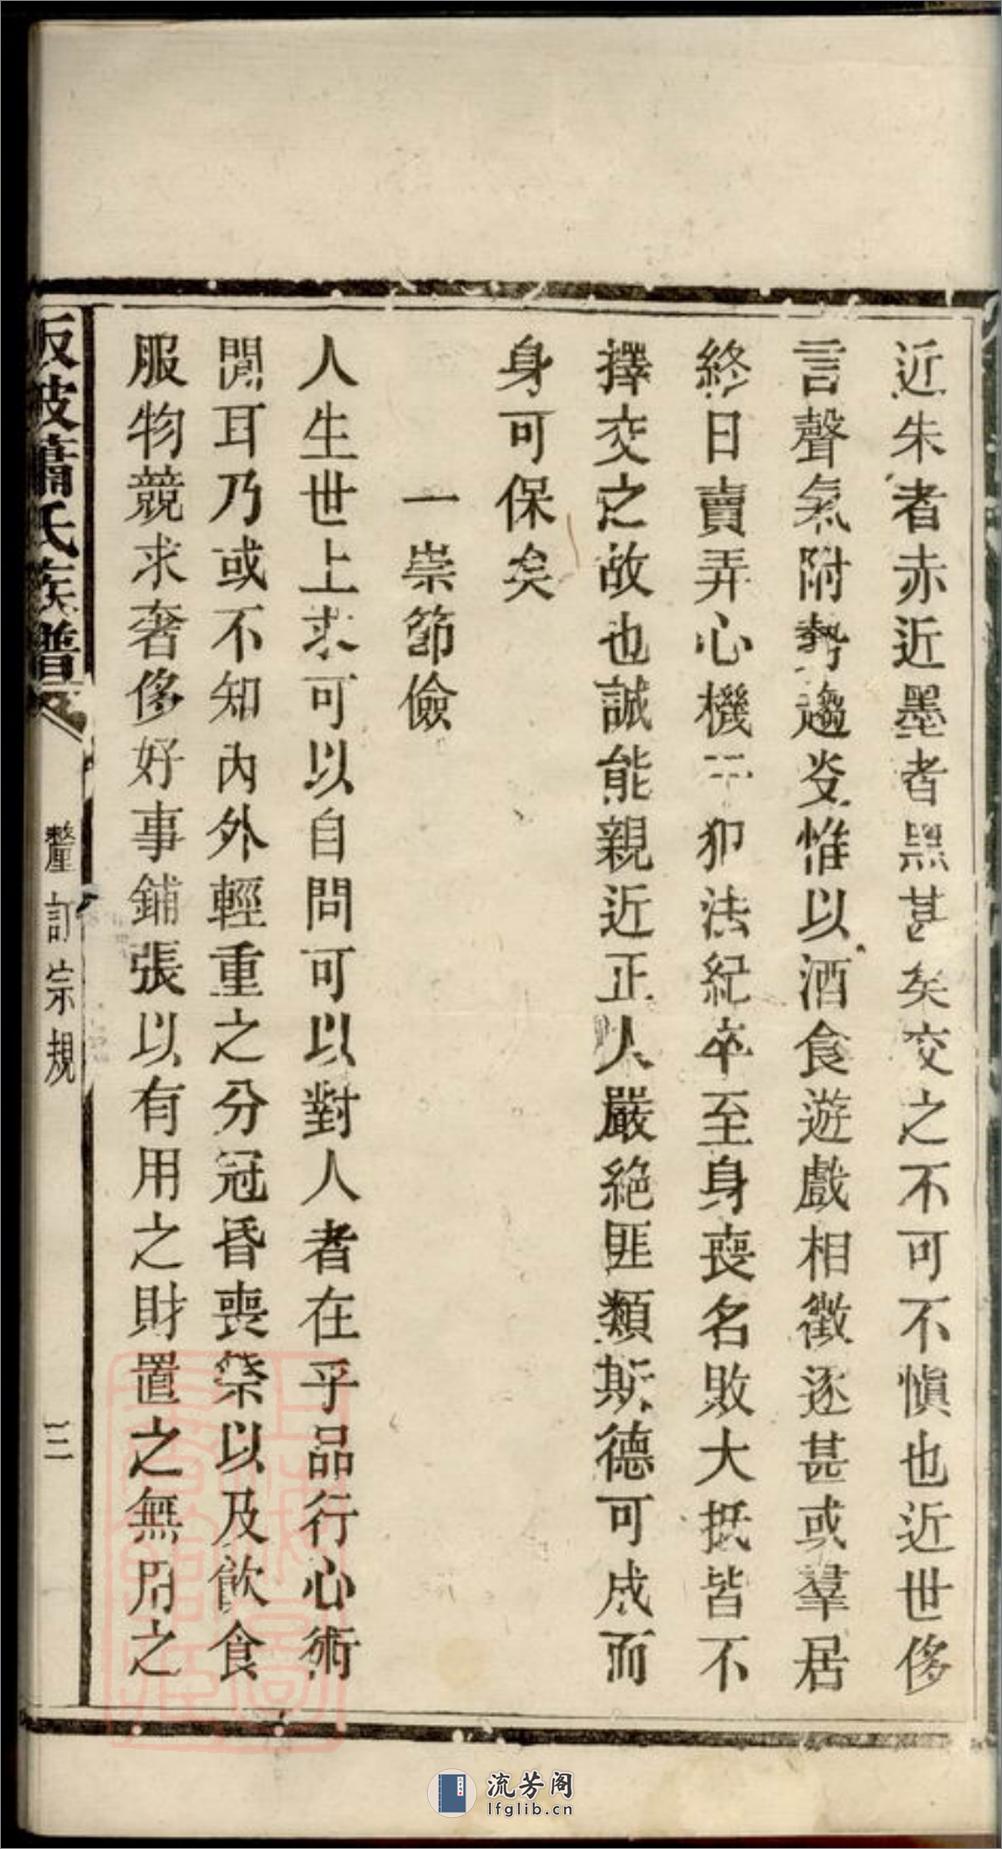 近朱者赤近墨者黑甚矣交之不可不慎也近世侈
言聲氣附勢趨炎惟以酒食遊戲相徵逐甚或羣居
終日賣弄心機干犯法紀卒至身喪名敗大抵皆不
擇交之故也誠能親近正人嚴絕匪類斯德可成而
身可保矣
一崇節儉
人生世上求可以自問可以對人者在乎品行心術
間耳乃或不知內外輕重之分冠昏喪祭以及飲食
服物競求奢侈好事鋪張以有用之財置之無用之
坂蕭氏族譜
釐訂宗規
三
流芳阁
lfglib.cn